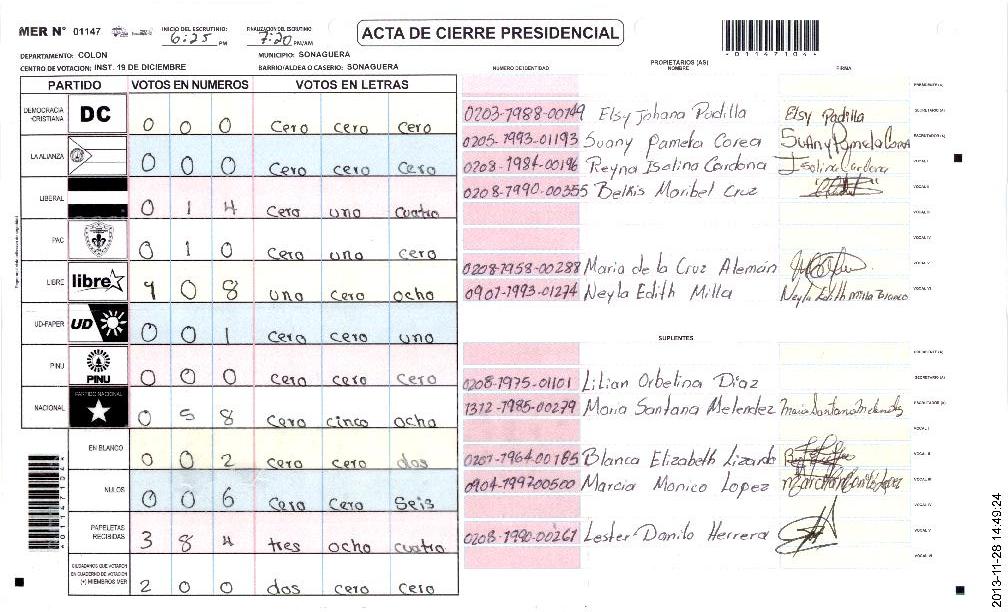 MER N° 01147 INICIO DEL ESCRUTINIO: 6:25 PM FINALIZACION DEL ESCRUTINIO 7:20 PM/AM
ACTA DE CIERRE PRESIDENCIAL
DEPARTAMENTO: COLON MUNICIPIO: SONAGUERA
CENTRO DE VOTACION: INST. 19 DE DICIEMBRE BARRIO/ALDEA O CASERIO: SONAGUERA
PARTIDO VOTOS EN NUMEROS VOTOS EN LETRAS
DEMOCRACIA CRISTIANA DC 0 0 0 cero cero cero
LA ALIANZA 0 0 0 cero cero cero
LIBERAL 0 1 4 cero uno cuatro
PAC 0 1 0 cero uno cero
LIBRE libre 1 0 8 uno cero ocho
UD-FAPER UD 0 0 1 cero cero uno
PINU PINU 0 0 0 cero cero cero
NACIONAL PARTIDO NACIONAL 0 5 8 cero cinco ocho
EN BLANCO 0 0 2 cero cero dos
NULOS 0 0 6 cero cero seis
PAPELETAS RECIBIDAS 3 8 4 tres ocho cuatro
CIUDADANOS QUE VOTARON EN CUADERNO DE VOTACION (+) MIEMBROS MER 2 0 0 dos cero cero
011471044
PROPIETARIOS (AS)
NUMERO DE IDENTIDAD NOMBRE FIRMA
PRESIDENTE (A)
0203-1988-00149 Elsy Johana Padilla Elsy Padilla SECRETARIO (A)
0205-1993-01193 Suany Pamela Corea Suany Pamela Corea ESCRUTADOR (A)
0208-1984-00196 Reyna Isolina Cardona Isolina Cardona VOCAL I
0208-1990-00355 Belkis Maribel Cruz VOCAL II
VOCAL III
VOCAL IV
0208-1958-00288 Maria de la Cruz Alemán VOCAL V
0907-1993-01274 Neyla Edith Milla Neyla Edith Milla Blanco VOCAL VI
SUPLENTES
PRESIDENTE (A)
0208-1975-01101 Lilian Orbelina Diaz SECRETARIO (A)
1312-1985-00279 Maria Santana Melendez Maria Santana Melendez ESCRUTADOR (A)
VOCAL I
0207-1964-00185 Blanca Elizabeth Lizardo VOCAL II
0904-199200500 Marcia Monico Lopez VOCAL III
VOCAL IV
0208-1990-00261 Lester Danilo Herrera VOCAL V
VOCAL VI
2013-11-28 14:49:24